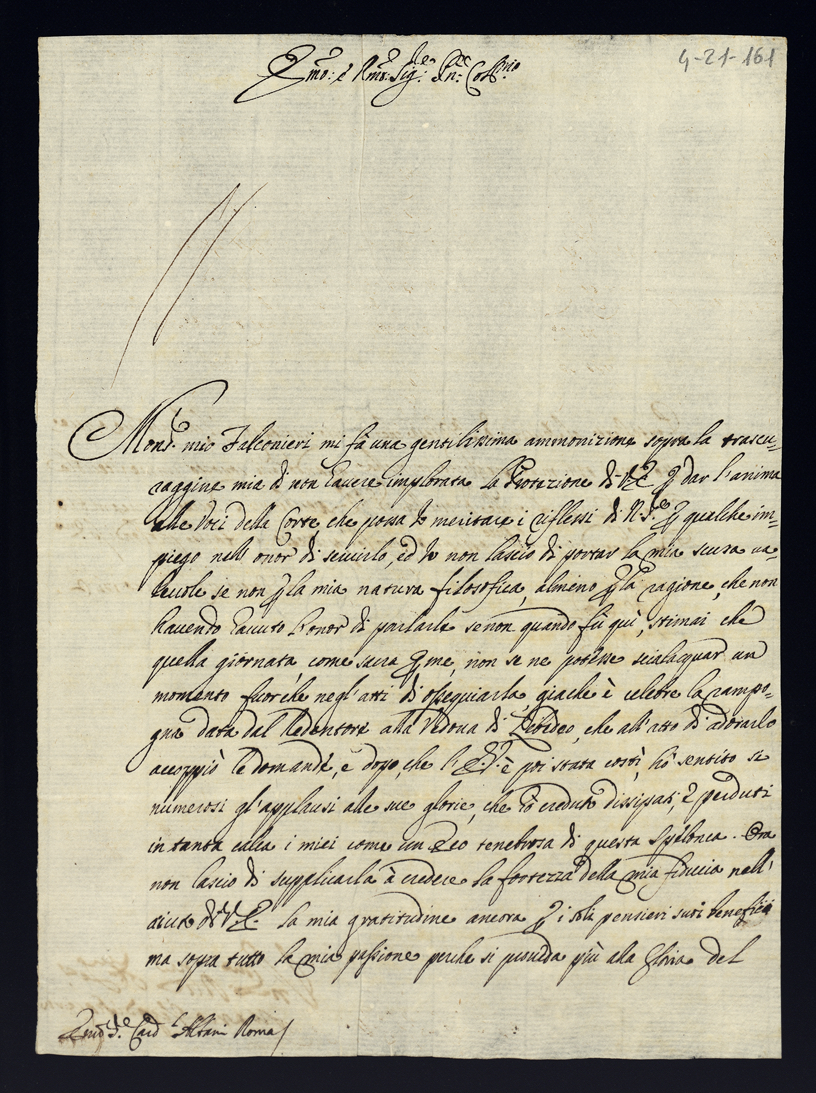 4-21-161
Emo: e Rmo: Sig:re Pne: Colmo
Mons.r mio Falconieri mi fà una gentilissima ammonizione sopra la trascu-
raggine mia di non havere implorata la Protezione di V.E. p dar l'anima
alle voci della Corte, che possa Io meritare i riflessi di N. S.re p qualche im-
piego nell'onor di servirlo, ed Io non lascio di portar la mia scusa va-
levole se non p la mia natura filosofica, almeno p la ragione, che non
havendo havuto l'onor di parlarle se non quando fù quì, stimai che
quella giornata come sacra p me, non se ne potesse scialacquar un
momento fuorche negl'atti di ossequiarla, giache è celebre la rampo-
gna data dal Redentore alla Vedova di Zebedeo, che all'atto di adorarlo
accoppiò le domande, e dopo, che l'E.V. è poi stata costì, hò sentito si
numerosi gl'applausi alle sue glorie, che hò creduto dissipati, e perduti
in tanta calca i miei come un Eco tenebrosa di questa Spelonca. Ora
non lascio di supplicarla à credere la fortezza della mia fiducia nell'
aiuto di V.E. la mia gratitudine ancora p i soli pensieri suoi benefici
ma sopra tutto la mia passione perche si proveda più alla Gloria del
Sig.r Card.l Albani Roma